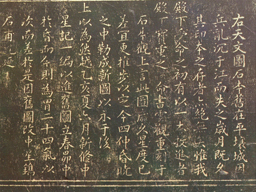 右天文圖石本舊在平壤城因
兵亂沉于江而失之歲月既久
其印本之存者亦絶無矣惟我
殿下受命之初有以一本投進者
殿下寶重之命書雲觀重刻于
石本觀上言此圖歲久星度已
差宜更推步以定今四仲昏曉
之中勒成新圖以示于後
上以爲然越乙亥夏六月新修中
星記一編以進舊圖立春昴中
於昏而今則爲胃二十四氣以
次而差於是因舊圖改中星鐫
石甫訖